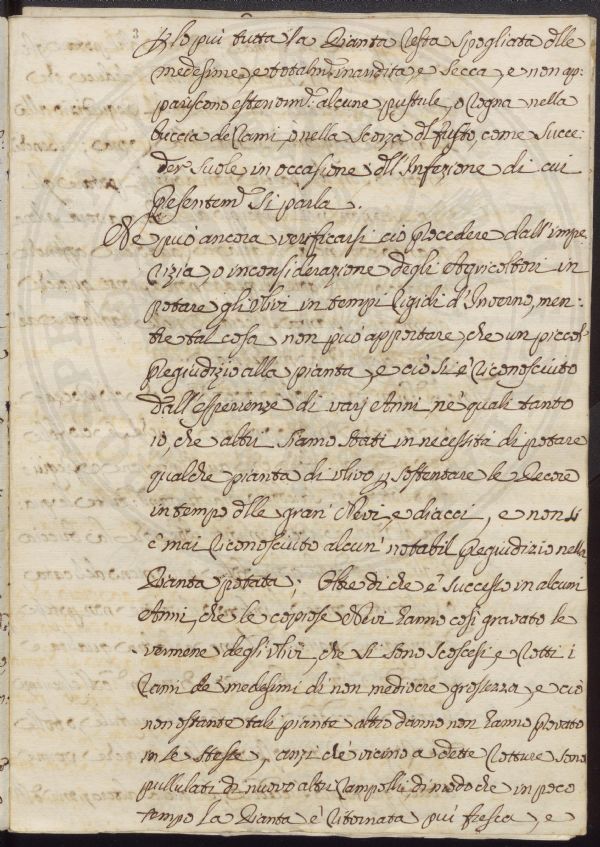 3
P lo più tutta la Pianta resta spogliata dlle
medesime, e totalmte inaridita e secca, e non ap:
pariscono esteriormte alcune pustule, o rogna nella
buccia de rami, o nella scorza dl fusto, come succe:
der suole in occasione dll'Infezione di cui
presentemte si parla.
Ne può ancora verificarsi ciò procedere dall'impe:
rizia, o inconsiderazione degli Agricoltori in
potare gli Ulivi in tempi rigidi d'Inverno, men:
tre tal cosa non può apportare, che un piccol
pregiudizio alla pianta, e ciò si è riconosciuto
dall'esperienze di varj Anni ne' quali tanto
io, che altri siamo stati in necessità di potare
qualche pianta di ulivo p sostentare le Pecore
in tempo dlle gran' Nevi, e diacci, e non si
è mai riconosciuto alcun' notabil pregiudizio nella
Pianta potata; Oltre di che è successo in alcuni
Anni, che le copiose Nevi hanno così gravato le
vermene degli ulivi, che si sono scoscesi, e rotti i
rami de medesimi di non mediocre grossezza, e ciò
non ostante tali piante altro danno non hanno provato
in se stesse, anzi che vicino a dette rotture sono
pullulati di nuovo altri rampolli, di modo che in poco
tempo la Pianta è ritornata più fresca, e